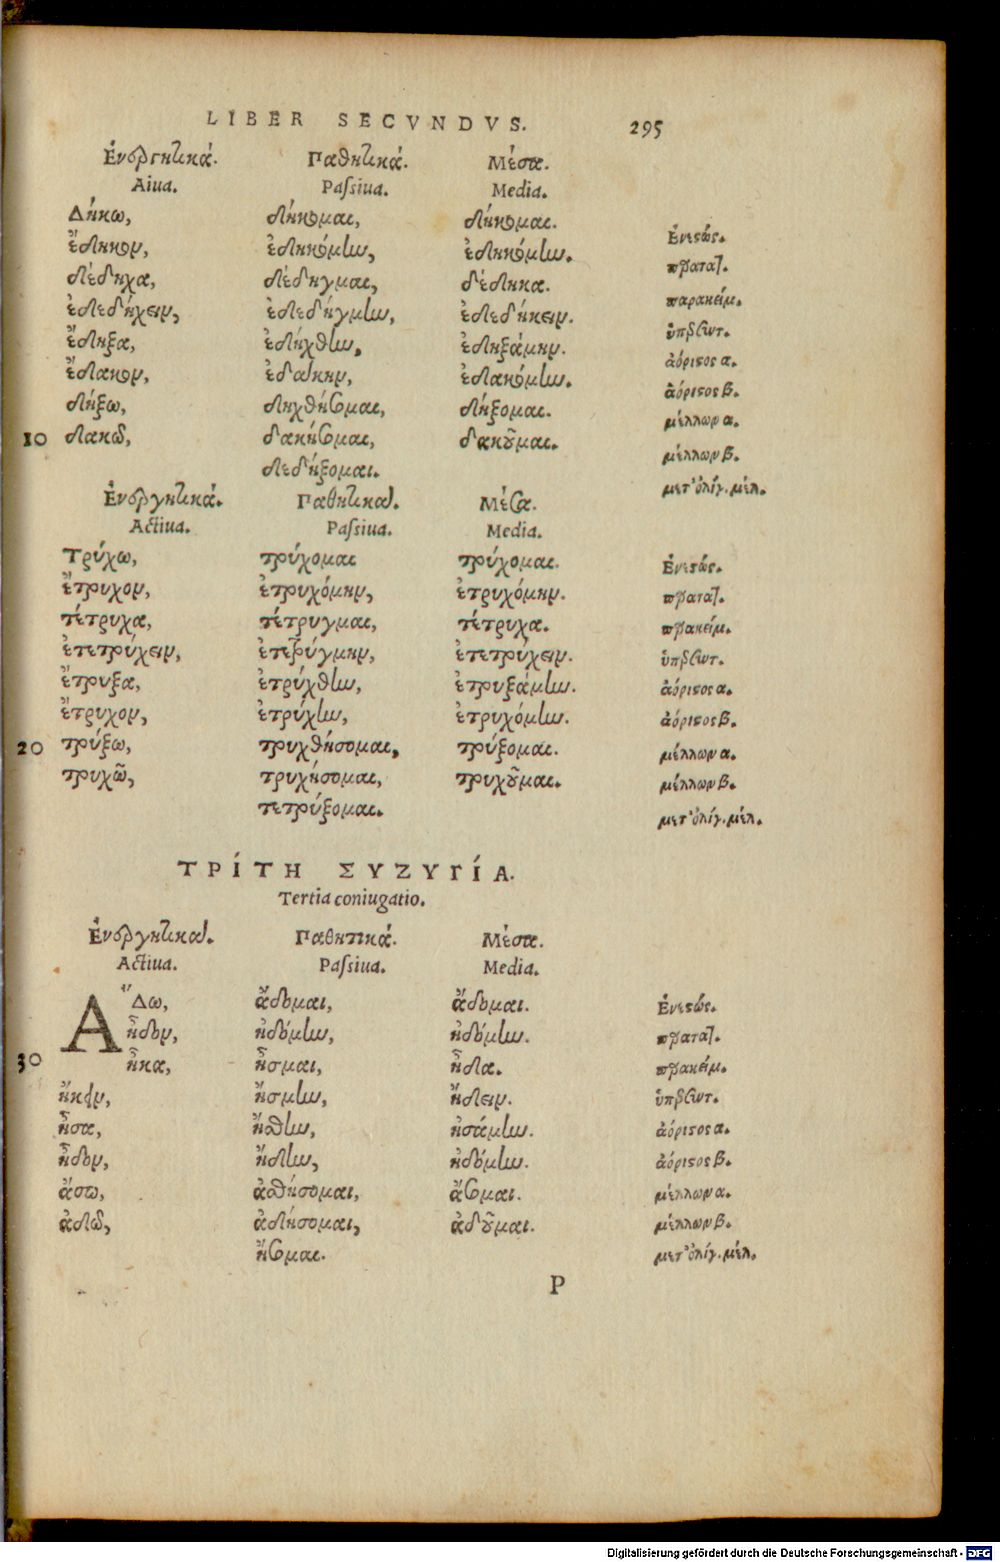 LIBER SECVNDVS. 295
Ἐνεργητικά. Παθητικά. Μέσα.
Aiua. Paſsiua. Media.
Δήκω, δήκομαι, δήκομαι. Ἐνεστώς.
ἔδηκον, ἐδηκόμην, ἐδηκόμην. πρατατ.
δέδηχα, δέδηγμαι, δέδηκα. παρακείμ.
ἐδεδήχειν, ἐδεδήγμην, ἐδεδήκειν. ὑπερσωτ.
ἔδηξα, ἐδήχθην, ἐδηξάμην. ἀόριστος α.
ἔδακον, ἐδάκην, ἐδακόμην. ἀόριστος β.
δήξω, δηχθήσομαι, δήξομαι. μέλλων α.
10 δακῶ, δακήσομαι, δακοῦμαι. μέλλων β.
δεδήξομαι. μετ' ὀλίγ. μέλ.
Ἐνεργητικά. Παθητικά. Μέσα.
Actiua. Paſsiua. Media.
Τρύχω, τρύχομαι τρύχομαι. Ἐνεστώς.
ἔτρυχον, ἐτρυχόμην, ἐτρυχόμην. πρατατ.
τέτρυχα, τέτρυγμαι, τέτρυχα. πρακείμ.
ἐτετρύχειν, ἐτετρύγμην, ἐτετρύχειν. ὑπερσωτ.
ἔτρυξα, ἐτρύχθην, ἐτρυξάμην. ἀόριστος α.
ἔτρυχον, ἐτρύχην, ἐτρυχόμην. ἀόριστος β.
20 τρύξω, τρυχθήσομαι, τρύξομαι. μέλλων α.
τρυχῶ, τρυχήσομαι, τρυχοῦμαι. μέλλων β.
τετρύξομαι. μετ' ὀλίγ. μέλ.
ΤΡΊΤΗ ΣΥΖΥΓΊΑ.
Tertia coniugatio.
Ἐνεργητικά. Παθητικά. Μέσα.
Actiua. Paſsiua. Media.
ἌΔω, ἄδομαι, ἄδομαι. Ἐνεστώς.
ἦδον, ἠδόμην, ἠδόμην. πρατατ.
30 ἦκα, ἦσμαι, ἦδα. πρακείμ.
ἤκειν, ἤσμην, ἤδειν. ὑπερσωτ.
ἦσα, ἤσθην, ἠσάμην. ἀόριστος α.
ἦδον, ἤδην, ἠδόμην. ἀόριστος β.
ἄσω, ἀσθήσομαι, ἄσομαι. μέλλων α.
ἀδῶ, ἀδήσομαι, ἀδοῦμαι. μέλλων β.
ἤσομαι. μετ' ὀλίγ. μέλ.
P
Digitalisierung gefördert durch die Deutsche Forschungsgemeinschaft - DFG